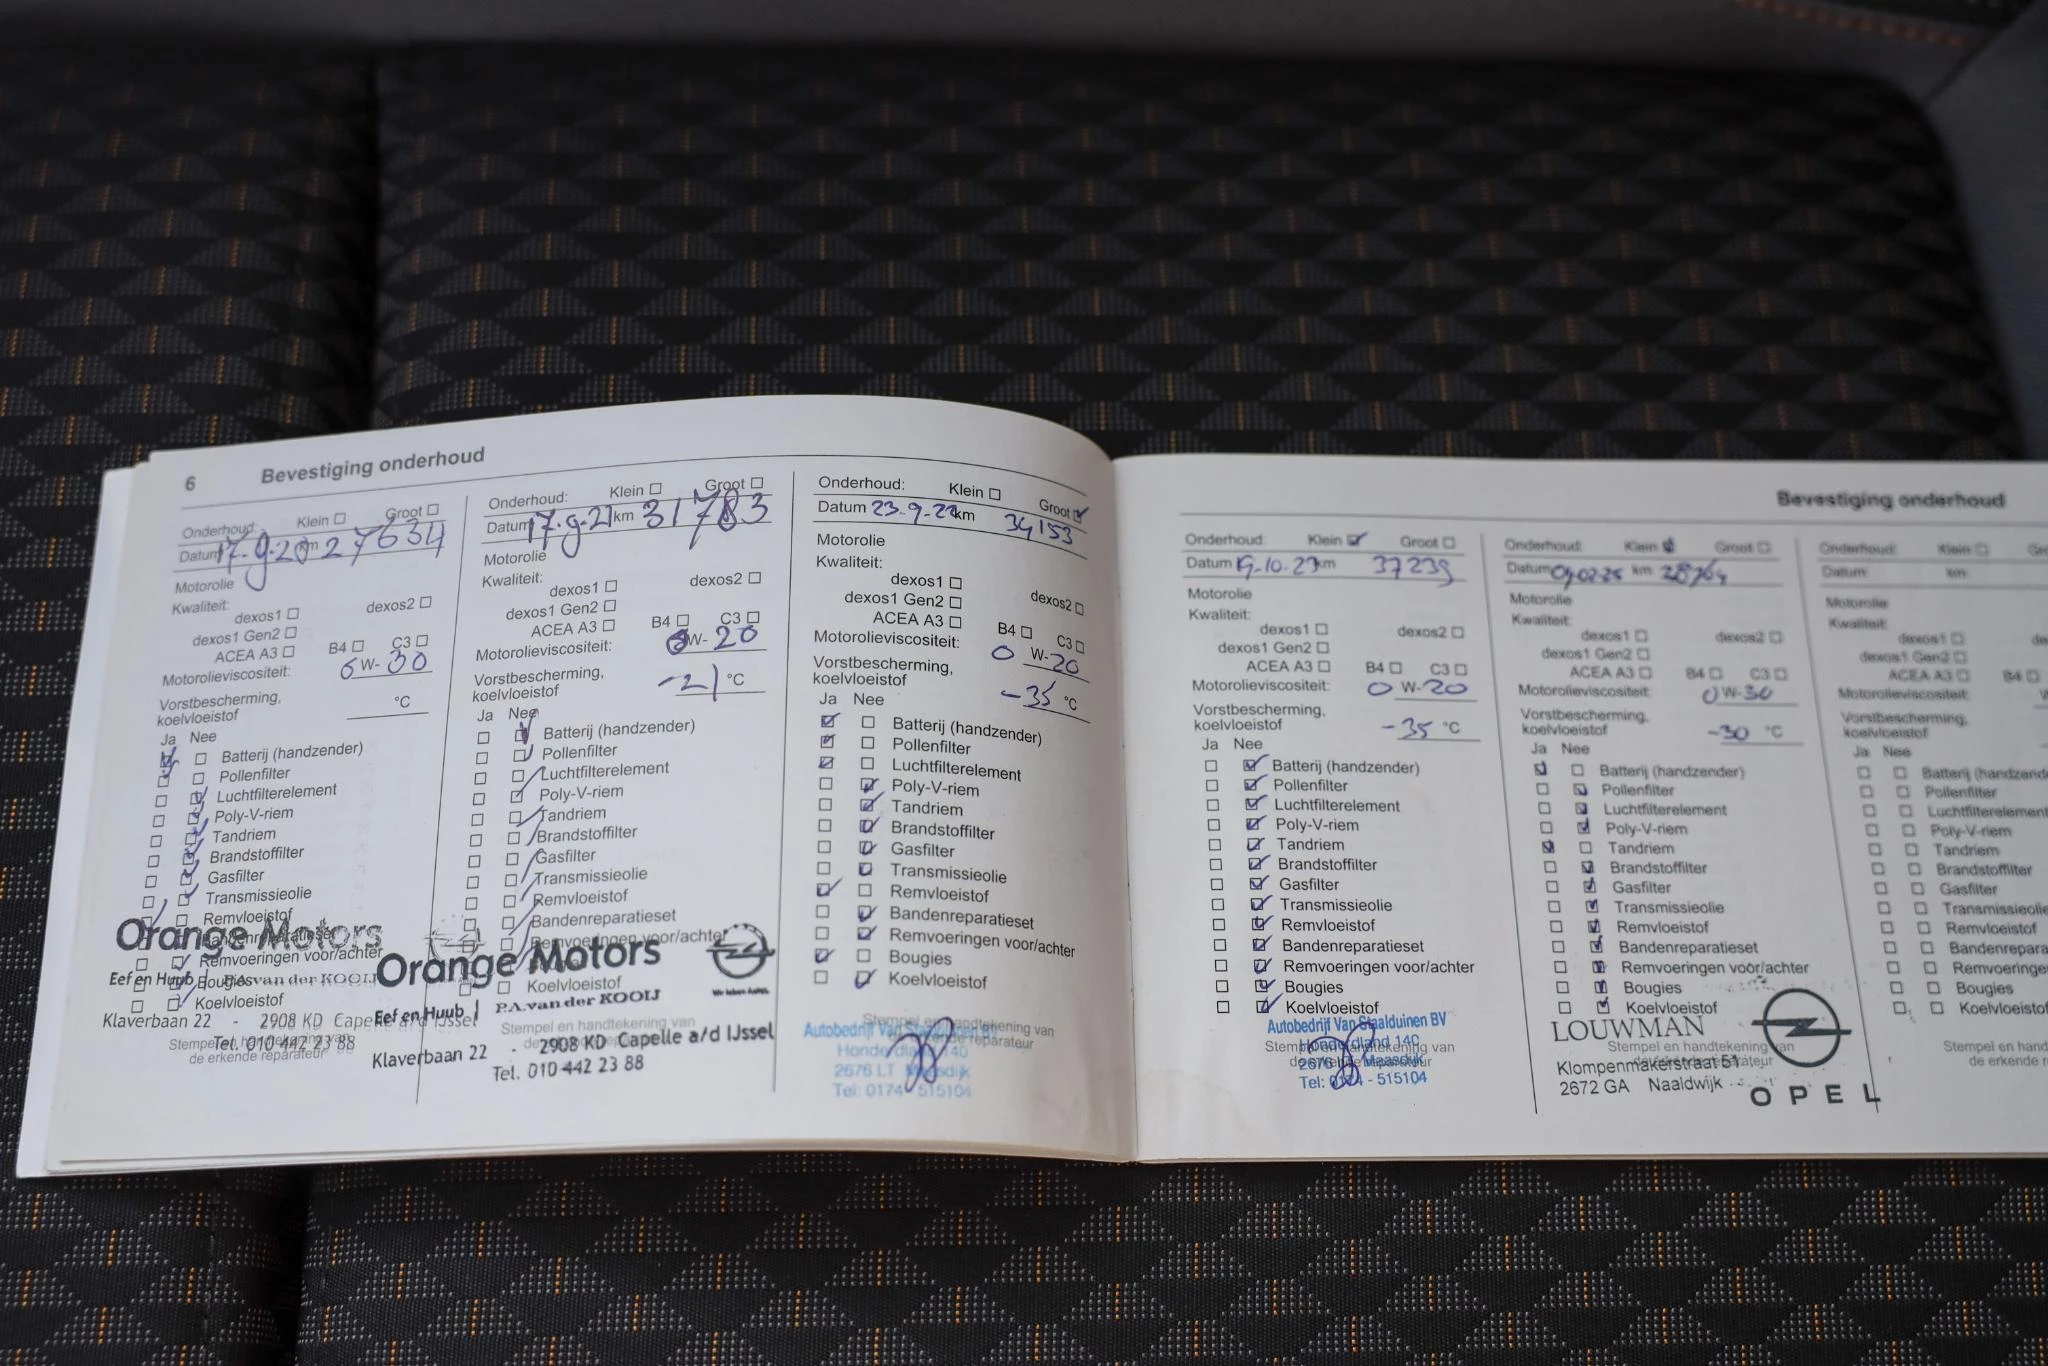 6 Bevestiging onderhoud
Onderhoud: Klein Groot
Datum 17.9.20 km 27634
Motorolie
Kwaliteit:
dexos1 dexos2
dexos1 Gen2
ACEA A3 B4 C3
Motorolieviscositeit: W-30
Vorstbescherming,
koelvloeistof °C
Ja Nee
Batterij (handzender)
Pollenfilter
Luchtfilterelement
Poly-V-riem
Tandriem
Brandstoffilter
Gasfilter
Transmissieolie
Remvloeistof
Bandenreparatieset
Remvoeringen voor/achter
Bougies
Koelvloeistof
Stempel en handtekening van
de erkende reparateur
Orange Motors
Eef en Huub | P.A. van der KOOIJ
Klaverbaan 22 - 2908 KD Capelle a/d IJssel
Tel. 010 442 23 88
Onderhoud: Klein Groot
Datum 17.9.21 km 31783
Motorolie
Kwaliteit:
dexos1 dexos2
dexos1 Gen2
ACEA A3 B4 C3
Motorolieviscositeit: 0 W-20
Vorstbescherming,
koelvloeistof -21 °C
Ja Nee
Batterij (handzender)
Pollenfilter
Luchtfilterelement
Poly-V-riem
Tandriem
Brandstoffilter
Gasfilter
Transmissieolie
Remvloeistof
Bandenreparatieset
Remvoeringen voor/achter
Koelvloeistof
Stempel en handtekening van
Orange Motors
Eef en Huub | P.A. van der KOOIJ
Klaverbaan 22 - 2908 KD Capelle a/d IJssel
Tel. 010 442 23 88
Onderhoud: Klein Groot
Datum 23-9-22 km 34153
Motorolie
Kwaliteit:
dexos1 dexos2
dexos1 Gen2
ACEA A3 B4 C3
Motorolieviscositeit: 0 W-20
Vorstbescherming,
koelvloeistof -35 °C
Ja Nee
Batterij (handzender)
Pollenfilter
Luchtfilterelement
Poly-V-riem
Tandriem
Brandstoffilter
Gasfilter
Transmissieolie
Remvloeistof
Bandenreparatieset
Remvoeringen voor/achter
Bougies
Koelvloeistof
Stempel en handtekening van
de erkende reparateur
Autobedrijf Van Staalduinen BV
Honderdland 140
2676 LT Maasdijk
Tel: 0174 - 515104
Bevestiging onderhoud
Onderhoud: Klein Groot
Datum 19-10-23 km 37239
Motorolie
Kwaliteit:
dexos1 dexos2
dexos1 Gen2
ACEA A3 B4 C3
Motorolieviscositeit: 0 W-20
Vorstbescherming,
koelvloeistof -35 °C
Ja Nee
Batterij (handzender)
Pollenfilter
Luchtfilterelement
Poly-V-riem
Tandriem
Brandstoffilter
Gasfilter
Transmissieolie
Remvloeistof
Bandenreparatieset
Remvoeringen voor/achter
Bougies
Koelvloeistof
Stempel en handtekening van
de erkende reparateur
Autobedrijf Van Staalduinen BV
Honderdland 140
2676 LT Maasdijk
Tel: 0174 - 515104
Onderhoud: Klein Groot
Datum km
Motorolie
Kwaliteit:
dexos1 dexos2
dexos1 Gen2
ACEA A3 B4 C3
Motorolieviscositeit: 0 W-30
Vorstbescherming,
koelvloeistof -30 °C
Ja Nee
Batterij (handzender)
Pollenfilter
Luchtfilterelement
Poly-V-riem
Tandriem
Brandstoffilter
Gasfilter
Transmissieolie
Remvloeistof
Bandenreparatieset
Remvoeringen voor/achter
Bougies
Koelvloeistof
Stempel en handtekening van
de erkende reparateur
LOUWMAN
Klompenmakerstraat 51
2672 GA Naaldwijk
OPEL
Onderhoud: Klein
Datum km
Motorolie
Kwaliteit:
dexos1
dexos1 Gen2
ACEA A3 B4
Motorolieviscositeit:
Vorstbescherming,
koelvloeistof
Ja Nee
Batterij (handzende
Pollenfilter
Luchtfilterelement
Poly-V-riem
Tandriem
Brandstoffilter
Gasfilter
Transmissieolie
Remvloeistof
Bandenrepara
Remvoeringen
Bougies
Koelvloeistof
Stempel en hand
de erkende r